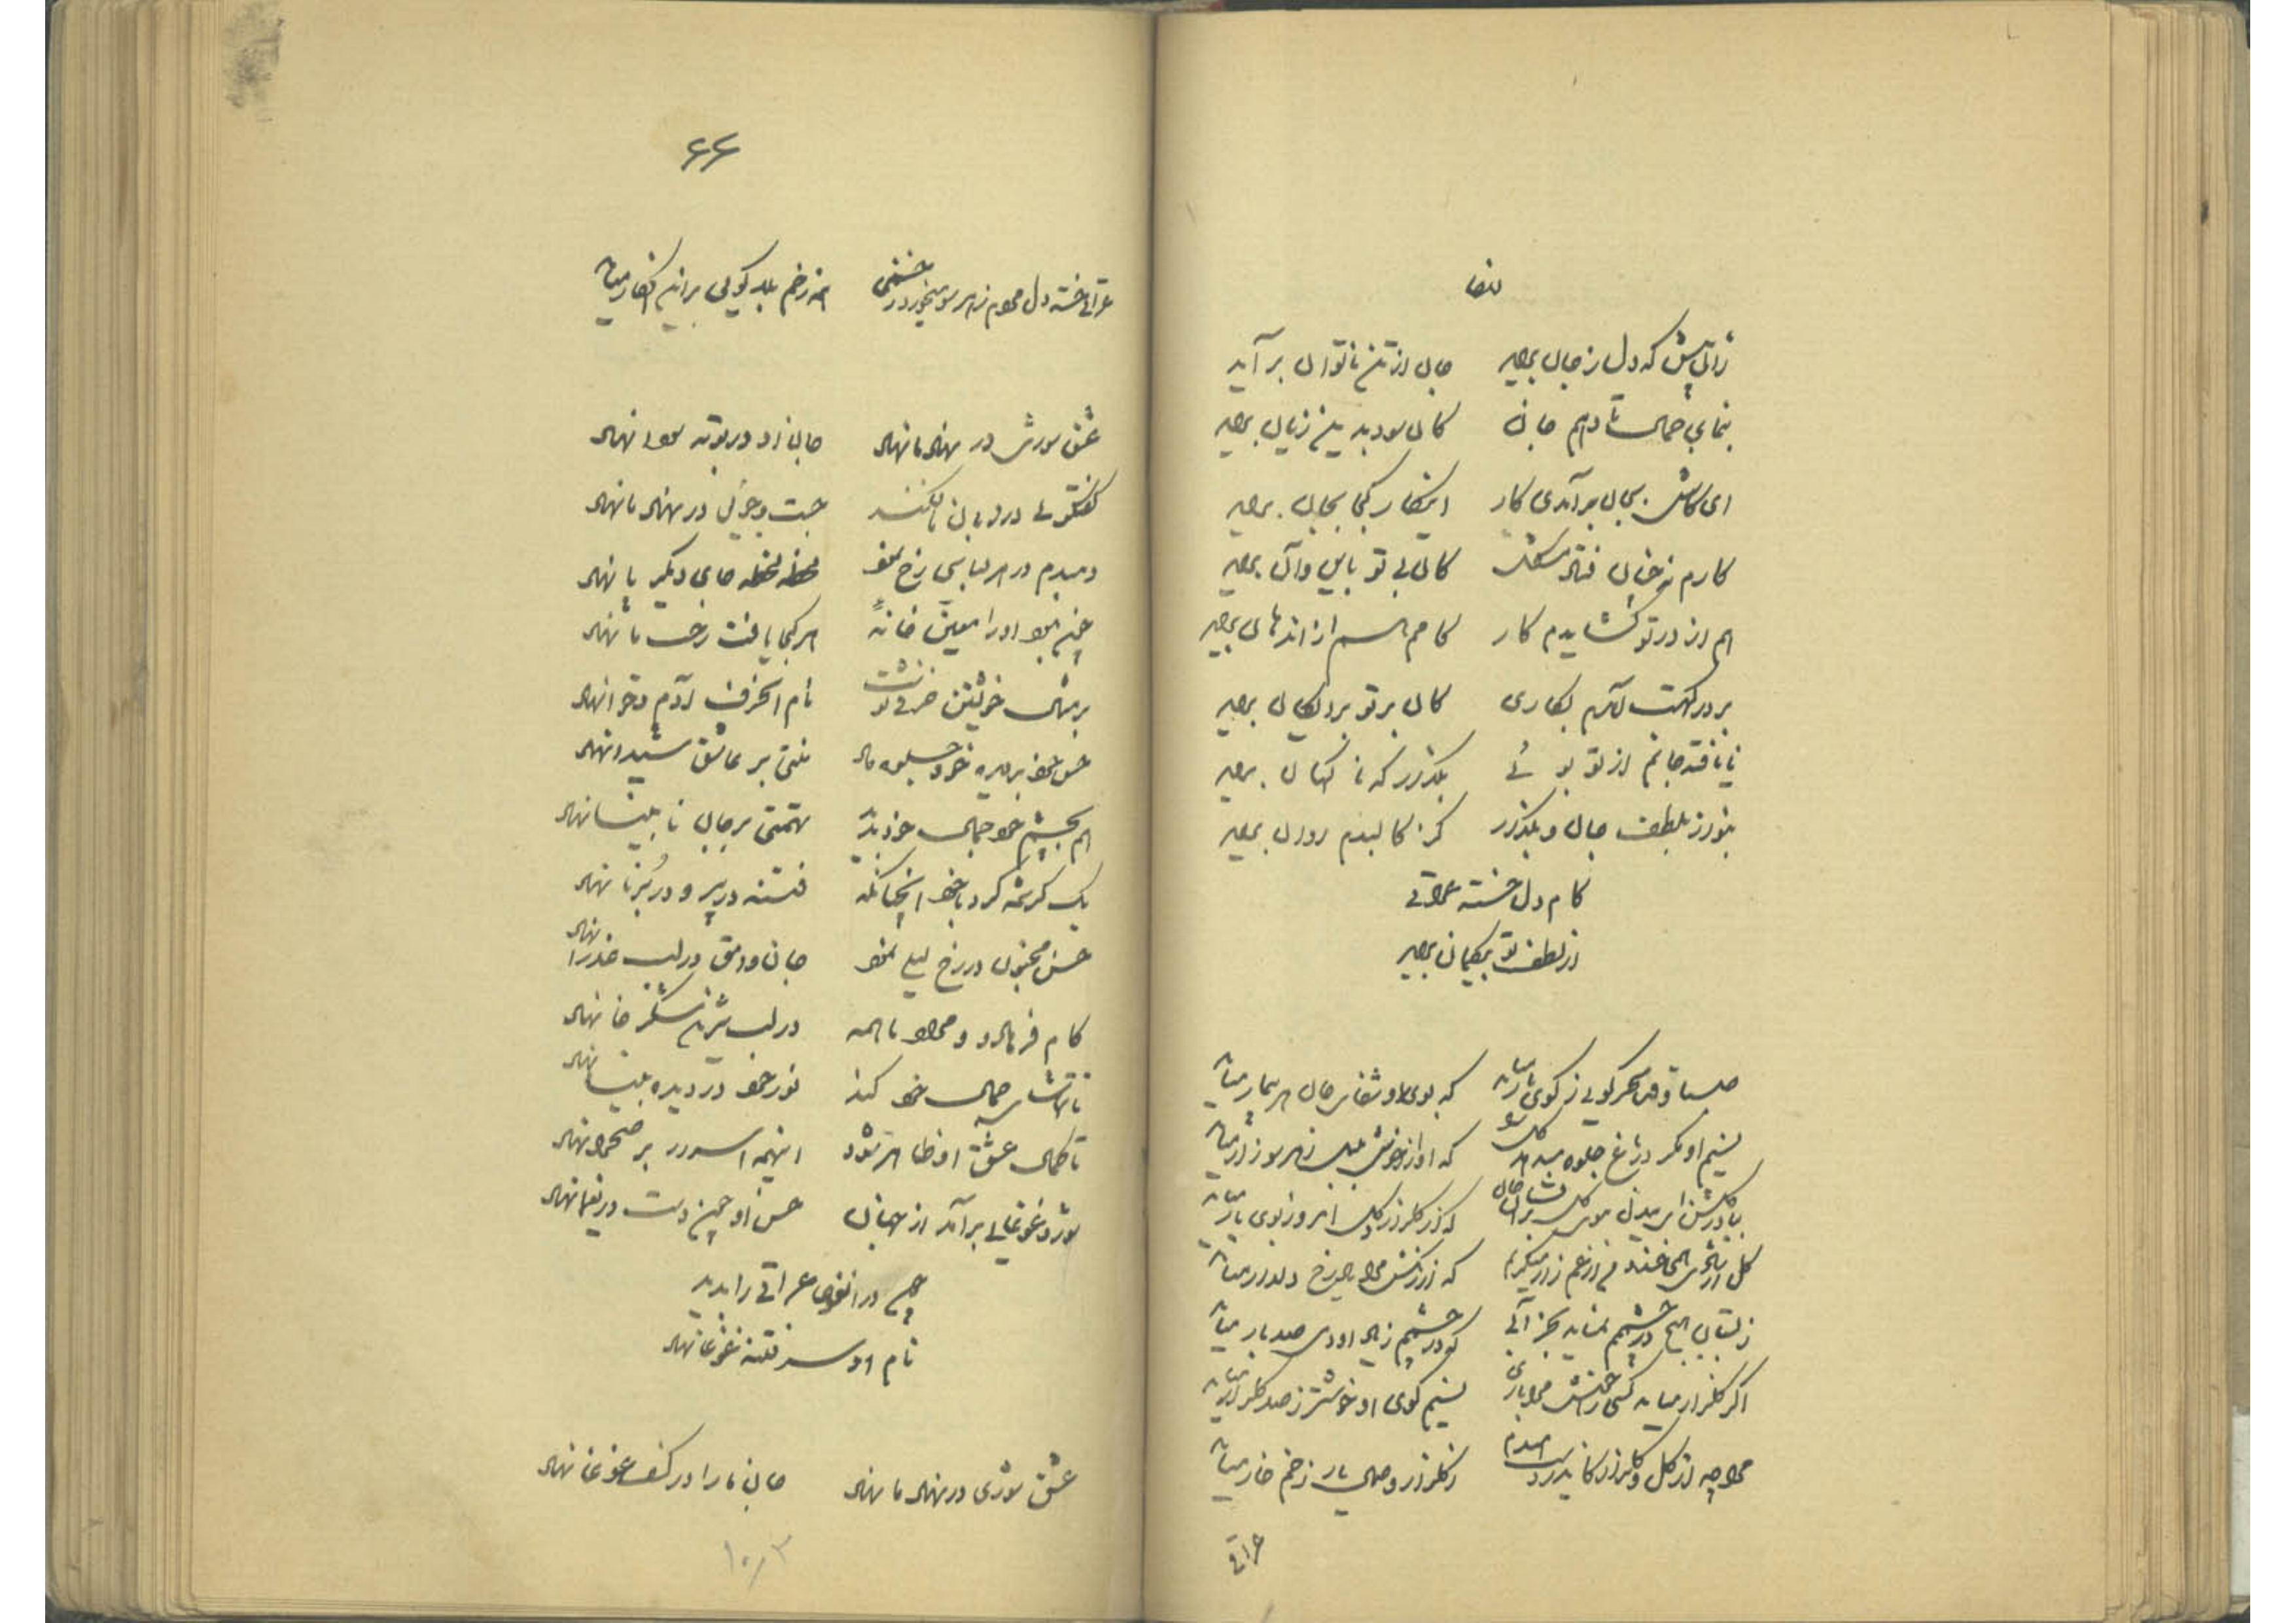 ایضا
زان پیش که دل ز جان برآید جان از تن ناتوان برآید
بنمای جمال تا دهم جان کان سود بدین زیان برآید
ای کاش بجان برآمدی کار این کار کجا بجان برآید
کارم نه چنان فتاد مشکل کان بی تو باین و آن برآید
هم از در تو گشایدم کار کامم همه از آن دهان برآید
بر درگهت آمدم بکاری کان بر تو برایگان برآید
نایافته جانم از تو بوئی مگذار که ناگهان برآید
بنواز بلطف جان و مگذار کز کالبدم روان برآید
کام دل خسته عراقی
از لطف تو بیگمان برآید
صبا وقت سحر گویی ز کوی یار میآید که بوی او شفای جان هر بیمار میآید
نسیم او مگر در باغ جلوه میدهد گل را که آواز خوش بلبل ز هر سو زار میآید
بیا در گلشن ای بیدل ببوی گل برافشان جان که از گلزار و گل امروز بوی یار میآید
گل از شادی همی خندد من از غم زار میگریم که از گلشن مرا یاد از رخ دلدار میآید
ز بستان هیچ در چشمم نمیآید مگر آبی که در چشمم ز یاد او دمی صد بار میآید
اگر گلزار میآید کسی را خوش مرا باری نسیم کوی او خوشتر ز صد گلزار میآید
مرا چه از گل و گلزار کاندر دست امیدم ز گلزار وصال یار زخم خار میآید
عراقی
۶۶
عراقی خسته دل هر دم ز هر سو میخورد زخمی همه زخم بلا گویی بر این افکار میآید
عشق شوری در نهاد ما نهاد جان ما در بوته سودا نهاد
گفتگوئی در زبان ما فکند جست و جوئی در نهاد ما نهاد
دمبدم در هر لباسی رخ نمود لحظه لحظه جای دیگر پا نهاد
چون نبود او را معین خانه هر کجا یافت رخت ما نهاد
بر مثال خویشتن حرفی نوشت نام آنحرف آدم و حوا نهاد
حسن خود بر دیده خود جلوه داد منتی بر عاشق شیدا نهاد
هم بچشم خود جمال خود بدید تهمتی بر جان نابینا نهاد
یک کرشمه کرد با خود آنچنانکه فتنه در پیر و در برنا نهاد
حسن مجنون در رخ لیلی نمود جان وامق در لب عذرا نهاد
کام فرهاد و مراد ما همه در لب شیرین شکرخا نهاد
تا تماشای جمال خود کند نور خود در دیده بینا نهاد
تا کمال عشق او ظاهر شود اینهمه اسرار بر صحرا نهاد
شور و غوغایی برآمد از جهان حسن او چون دست در یغما نهاد
چون در آن غوغا عراقی را بدید
نام او سر فتنه غوغا نهاد
عشق شوری در نهاد ما نهاد جان ما را در کف غوغا نهاد
۱۰۳